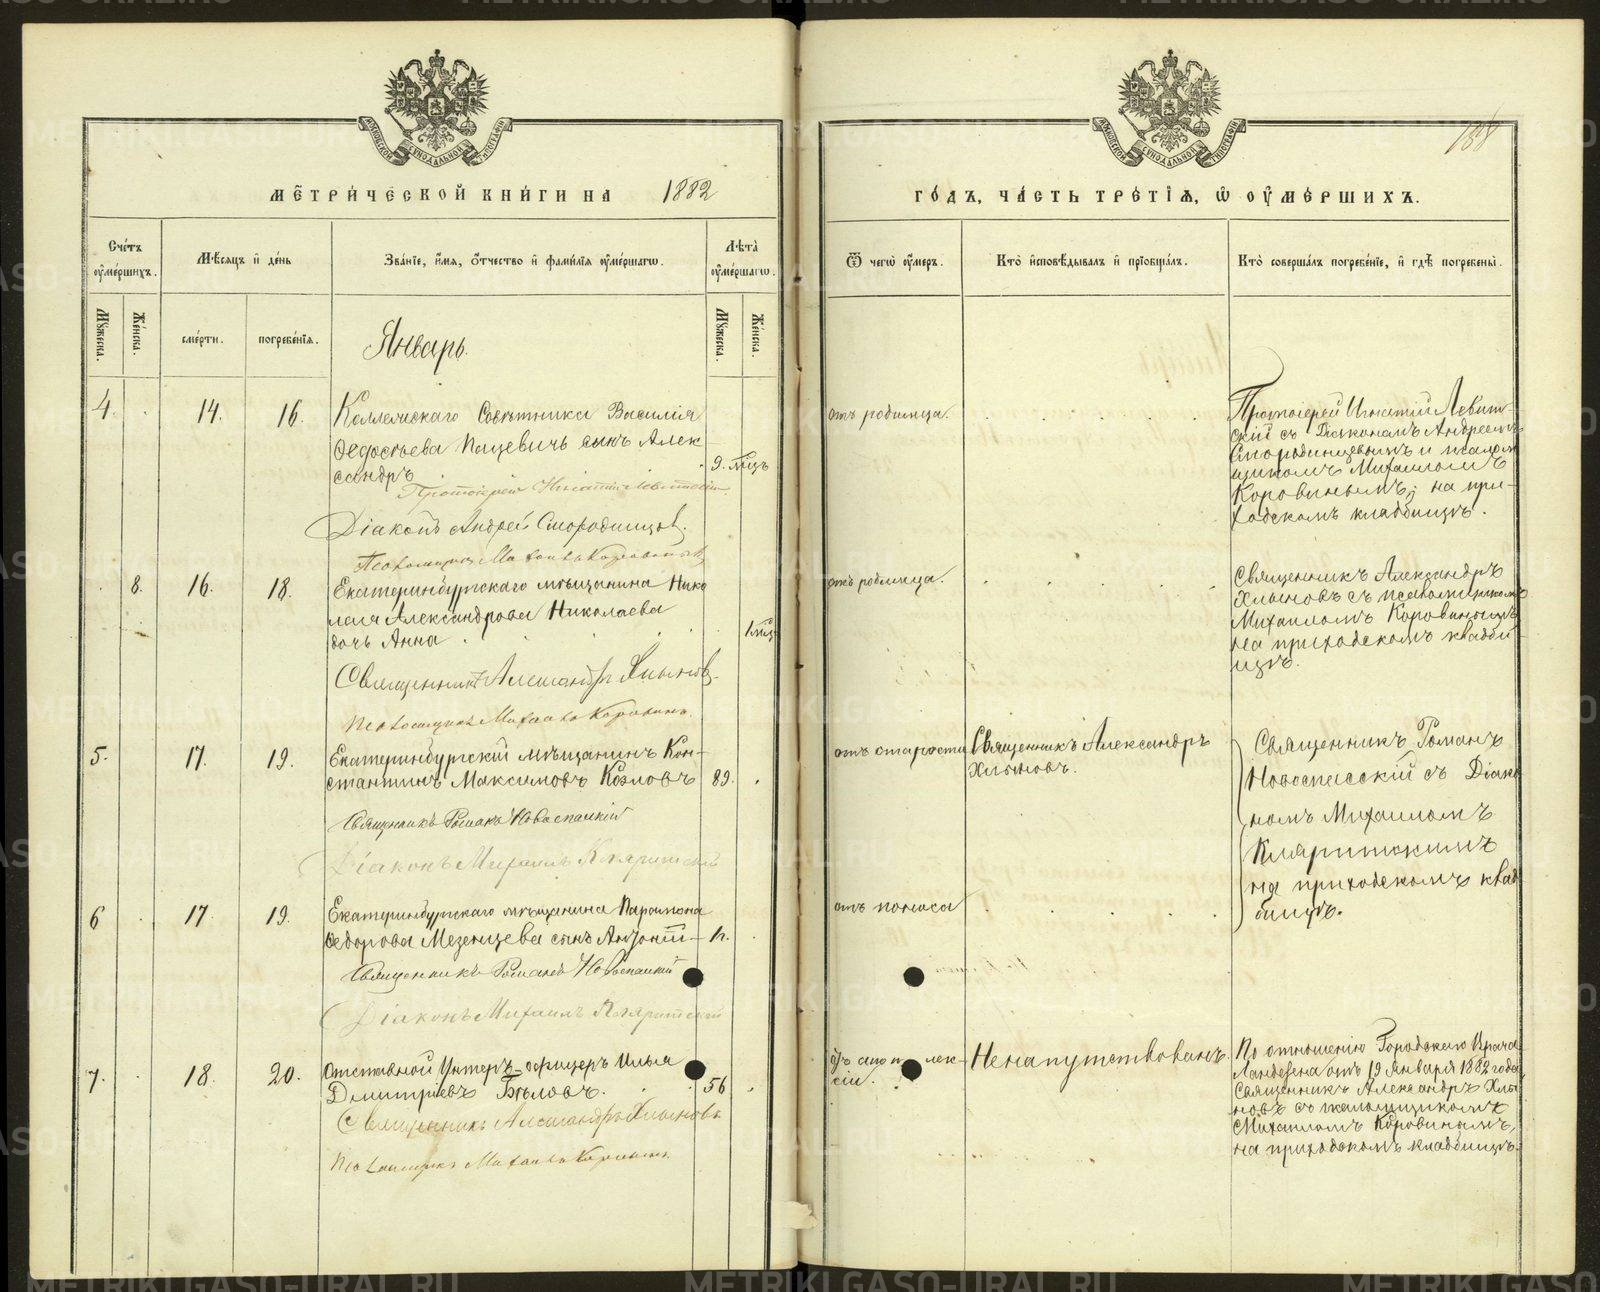 МОСКОВСКОЙ СѴНОДАЛЬНОЙ ТИПОГРАФІИ
МЕТРИ́ЧЕСКОЙ КНИ́ГИ НА 1882
Сче́тъ ᲂу҆ме́ршихъ.
Мѣ́сяцъ и҆ де́нь
Зва́нїе, и҆́мя, ѻ҆́тчество и҆ фами́лїя ᲂу҆ме́ршагѡ.
Лѣ́та ᲂу҆ме́ршагѡ.
Мꙋ́жеска.
Же́нска.
сме́рти.
погребе́нїѧ.
Январь.
Мꙋ́жеска.
Же́нска.
4. 14. 16. Коллежскаго Совѣтника Василія
Ѳедосѣева Пацевичъ сынъ Алек
сандръ 9. мцъ
Протоіерей Игнатій Левитскій
Діаконъ Андрей Смородинцов.
Псаломщикъ Михаилъ Коровинъ
8. 16. 18. Екатеринбургскаго мѣщанина Нико
лая Александрова Николаева
дочь Анна 1 мцъ
Священникъ Александръ Хлыновъ
Псаломщикъ Михаилъ Коровинъ
5. 17. 19. Екатеринбургскій мѣщанинъ Кон-
стантинъ Максимовъ Козловъ 89.
Священникъ Романъ Новоспасскій
Діаконъ Михаилъ
6 17 19. Екатеринбургскаго мѣщанина Парамона
Ѳедорова Мезенцева сынъ Антоній
Священникъ Романъ Новоспасскій
Діаконъ Михаилъ
7. 18. 20. Отставной Унтеръ-офицеръ Илья
Дмитріевъ Бѣловъ. 56
Священникъ Александръ Хлыновъ
Псаломщикъ Михаилъ Коровинъ
188
МОСКОВСКОЙ СѴНОДАЛЬНОЙ ТИПОГРАФІИ
ГО́ДЪ, ЧА́СТЬ ТРЕ́ТЇѦ, Ѡ҆ ОУ҆МЕ́РШИХЪ.
Ѿ чегѡ̀ ᲂу҆́меръ.
Кто̀ и҆сповѣ́дывалъ и҆ прїобща́лъ.
Кто̀ соверша́лъ погребе́нїе, и҆ гдѣ̀ погребены̀.
отъ родимца.
Протоіерей Игнатій Левит-
скій съ Діакономъ Андреемъ
Смородинцевымъ и псалом
щикомъ Михаиломъ
Коровинымъ; на при-
ходскомъ кладбищѣ.
отъ родимца.
Священникъ Александръ
Хлыновъ съ псаломщикомъ
Михаиломъ Коровинымъ
на приходскомъ кладби
щѣ.
отъ старости
Священникъ Александръ
Хлыновъ.
Священникъ Романъ
Новоспасскій съ Діако
номъ Михаиломъ
на приходскомъ клад
бищѣ.
отъ поноса
Отъ апоплек-
сіи.
Ненапутствованъ.
По отношенію Городскаго Врача
Ландезена отъ 19 Января 1882 года
Священникъ Александръ Хлы
новъ съ псаломщикомъ
Михаиломъ Коровинымъ,
на приходскомъ кладбищѣ.
METRIKI.GASO-URAL.RU